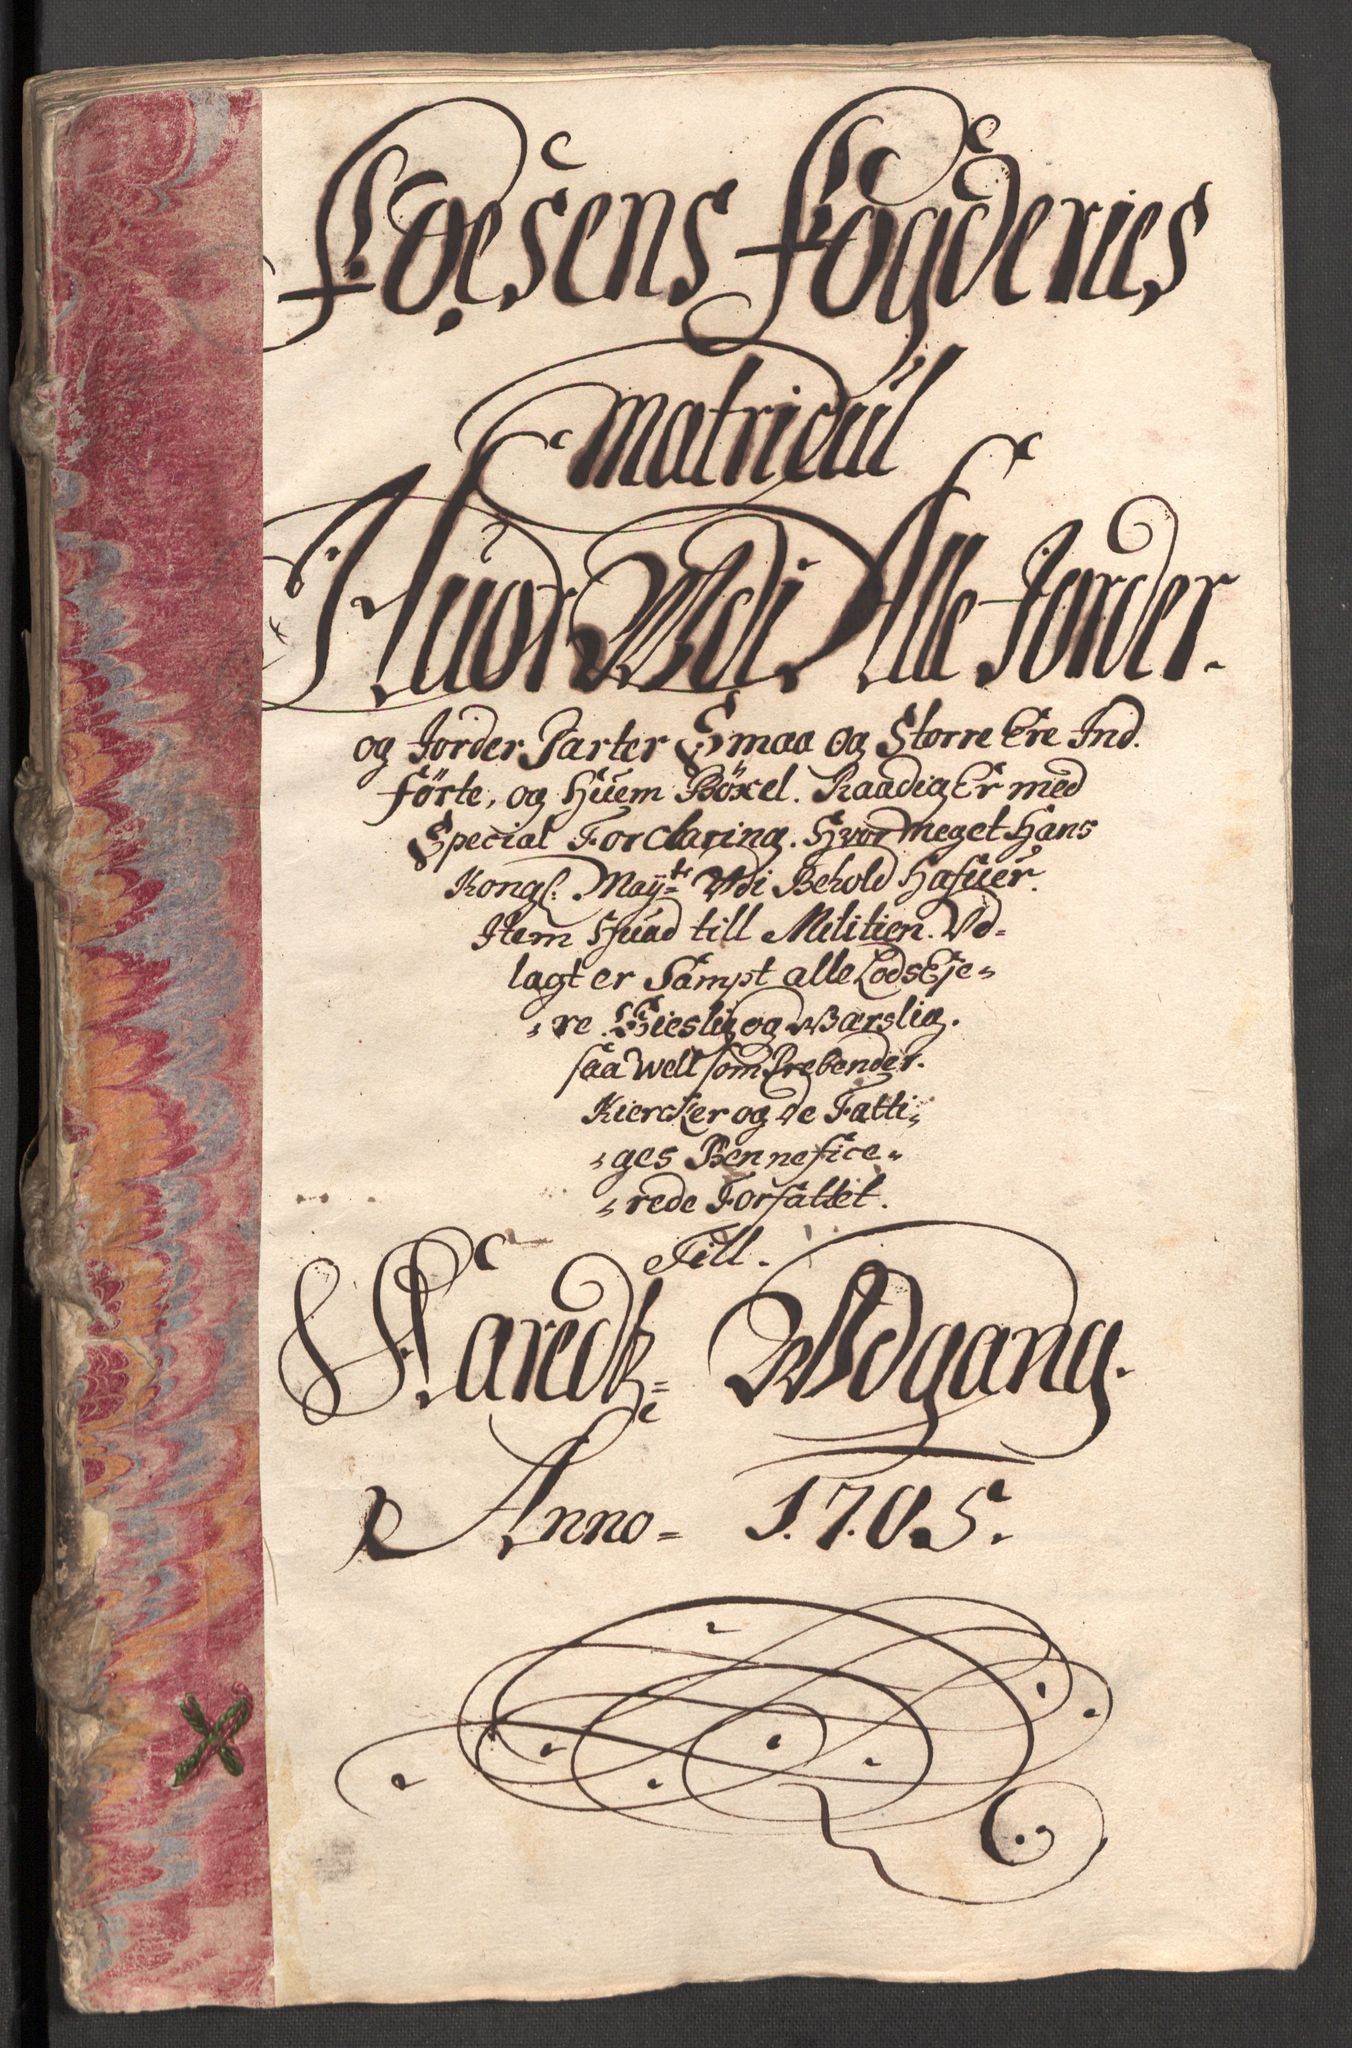 Foesens fögderies
matricul
Huor Udi Alle Jorder
og Jorder Parter Smaa og Större Ere Ind.
förte, og Huem Böxel. Raadig Er med
Special Forclaring. Hvor Meget Hans
Kongl: Mayts Udi Behold Hafuer.
Item Huad till Militien. Ud-
lagt er Sampt alle Lodseje-
re. Giestlig og Wærslig.
saa Well som Prebender.
Kiercker og de Fatti-
ges Bennefice-
rede Forfattet.
Till.
Aaredtz Udgang.
Anno 1705.